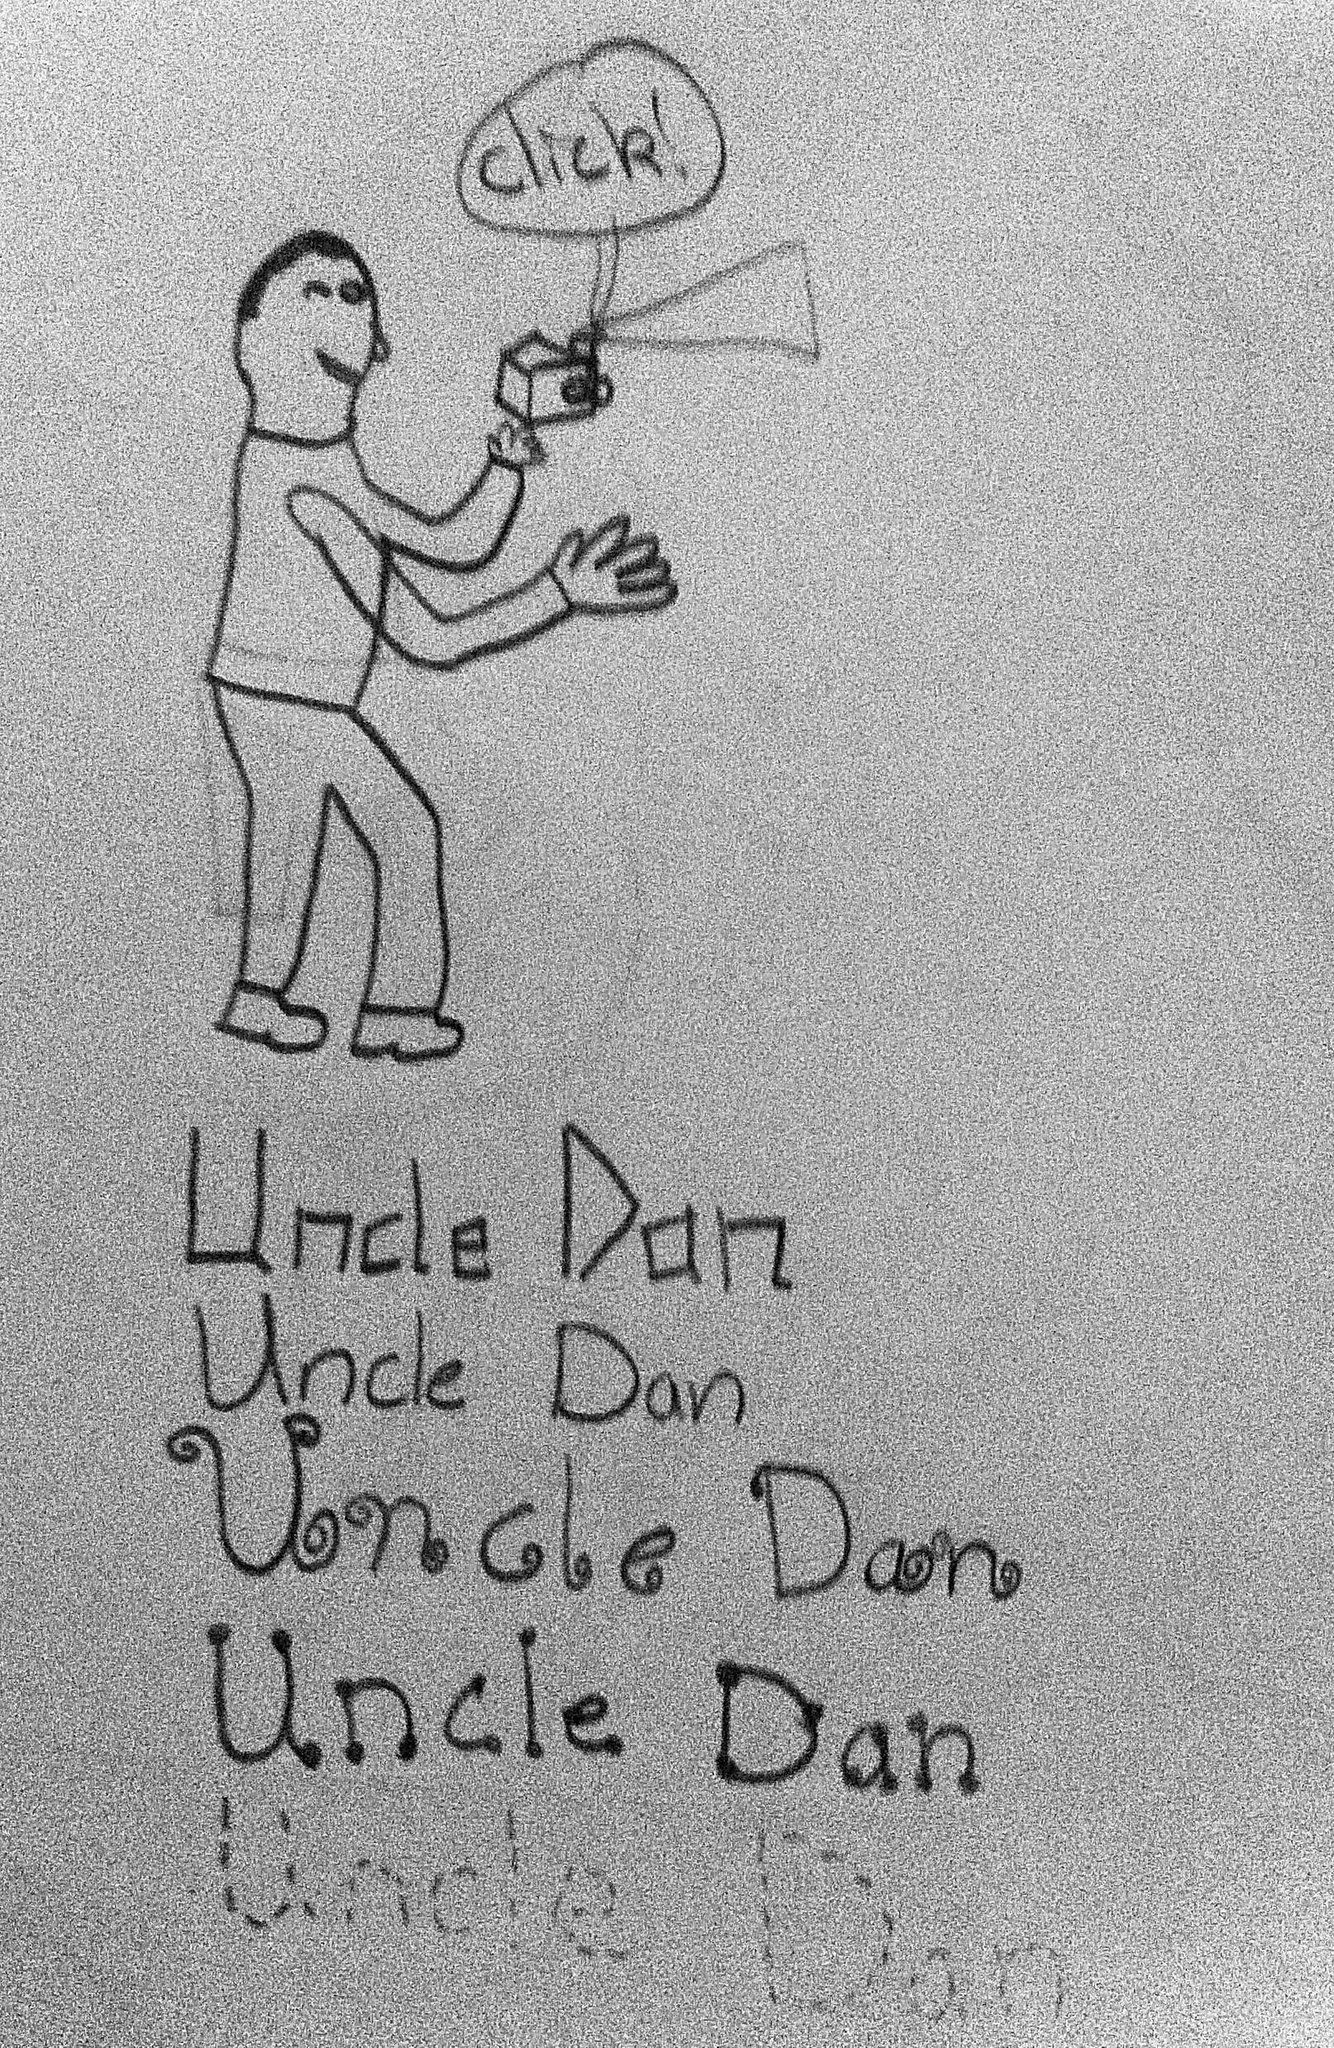 click!
Uncle Dan
Uncle Dan
Uncle Dan
Uncle Dan
Uncle Dan